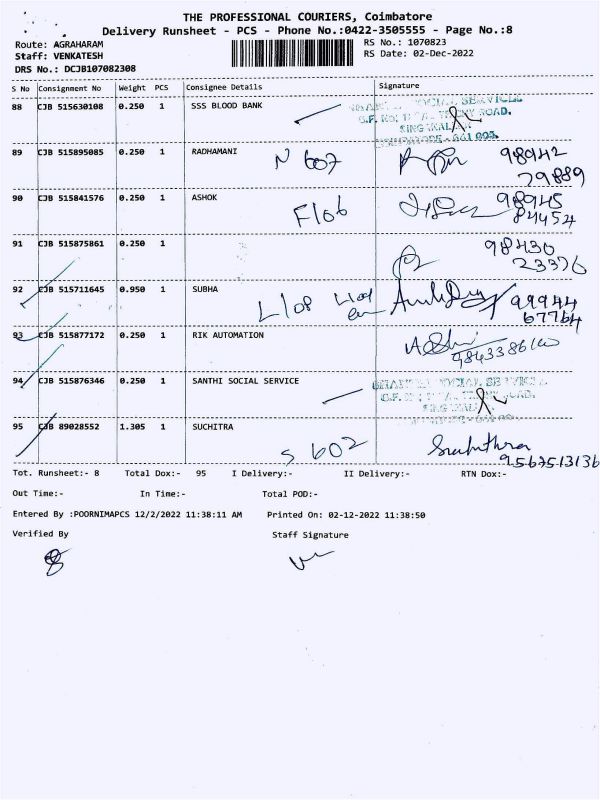 THE PROFESSIONAL COURIERS, Coimbatore
Delivery Runsheet - PCS - Phone No.:0422-3505555 - Page No.:8
Route: AGRAHARAM
RS No.: 1070823
Staff: VENKATESH
RS Date: 02-Dec-2022
DRS No.: DCJB107082308
S No Consignment No Weight PCS Consignee Details Signature
88 CJB 515630108 0.250 1 SSS BLOOD BANK
SOCIAL SERVICE
ROAD.
89 CJB 515895085 0.250 1 RADHAMANI N 607 98942
79889
90 CJB 515841576 0.250 1 ASHOK F106 98945
84454
91 CJB 515875861 0.250 1 98430
23376
92 CJB 515711645 0.950 1 SUBHA L108 99944
67764
93 CJB 515877172 0.250 1 RIK AUTOMATION
94 CJB 515876346 0.250 1 SANTHI SOCIAL SERVICE
95 CJB 89028552 1.305 1 SUCHITRA S 602 Suchithra
9567513136
Tot. Runsheet:- 8 Total Dox:- 95 I Delivery:- II Delivery:- RTN Dox:-
Out Time:- In Time:- Total POD:-
Entered By :POORNIMAPCS 12/2/2022 11:38:11 AM Printed On: 02-12-2022 11:38:50
Verified By Staff Signature